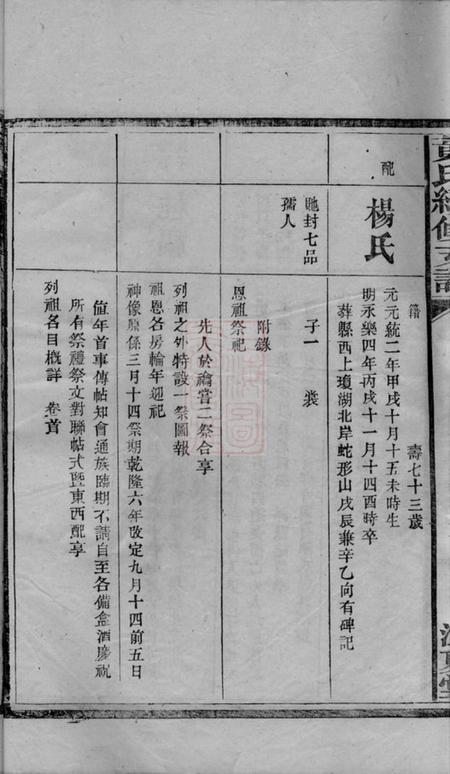 黃氏續修
配
楊氏
籍
壽七十三歲
元元統二年甲戌十月十五未時生
明永樂四年丙戌十一月十四酉時卒
葬縣西上瓊湖北岸蛇形山戌辰兼辛乙向有碑記
貤封七品
孺人
子一 裳
附錄
恩祖祭祀
先人於禴嘗二祭合享
列祖之外特設一祭圖報
祖恩各房輪年迎祀
神像原係三月十四祭期乾隆六年改定九月十四前五日
值年首事傳帖知會通族臨期不請自至各備盒酒慶祝
所有祭禮祭文對聯帖式暨東西配享
列祖各目概詳 卷首